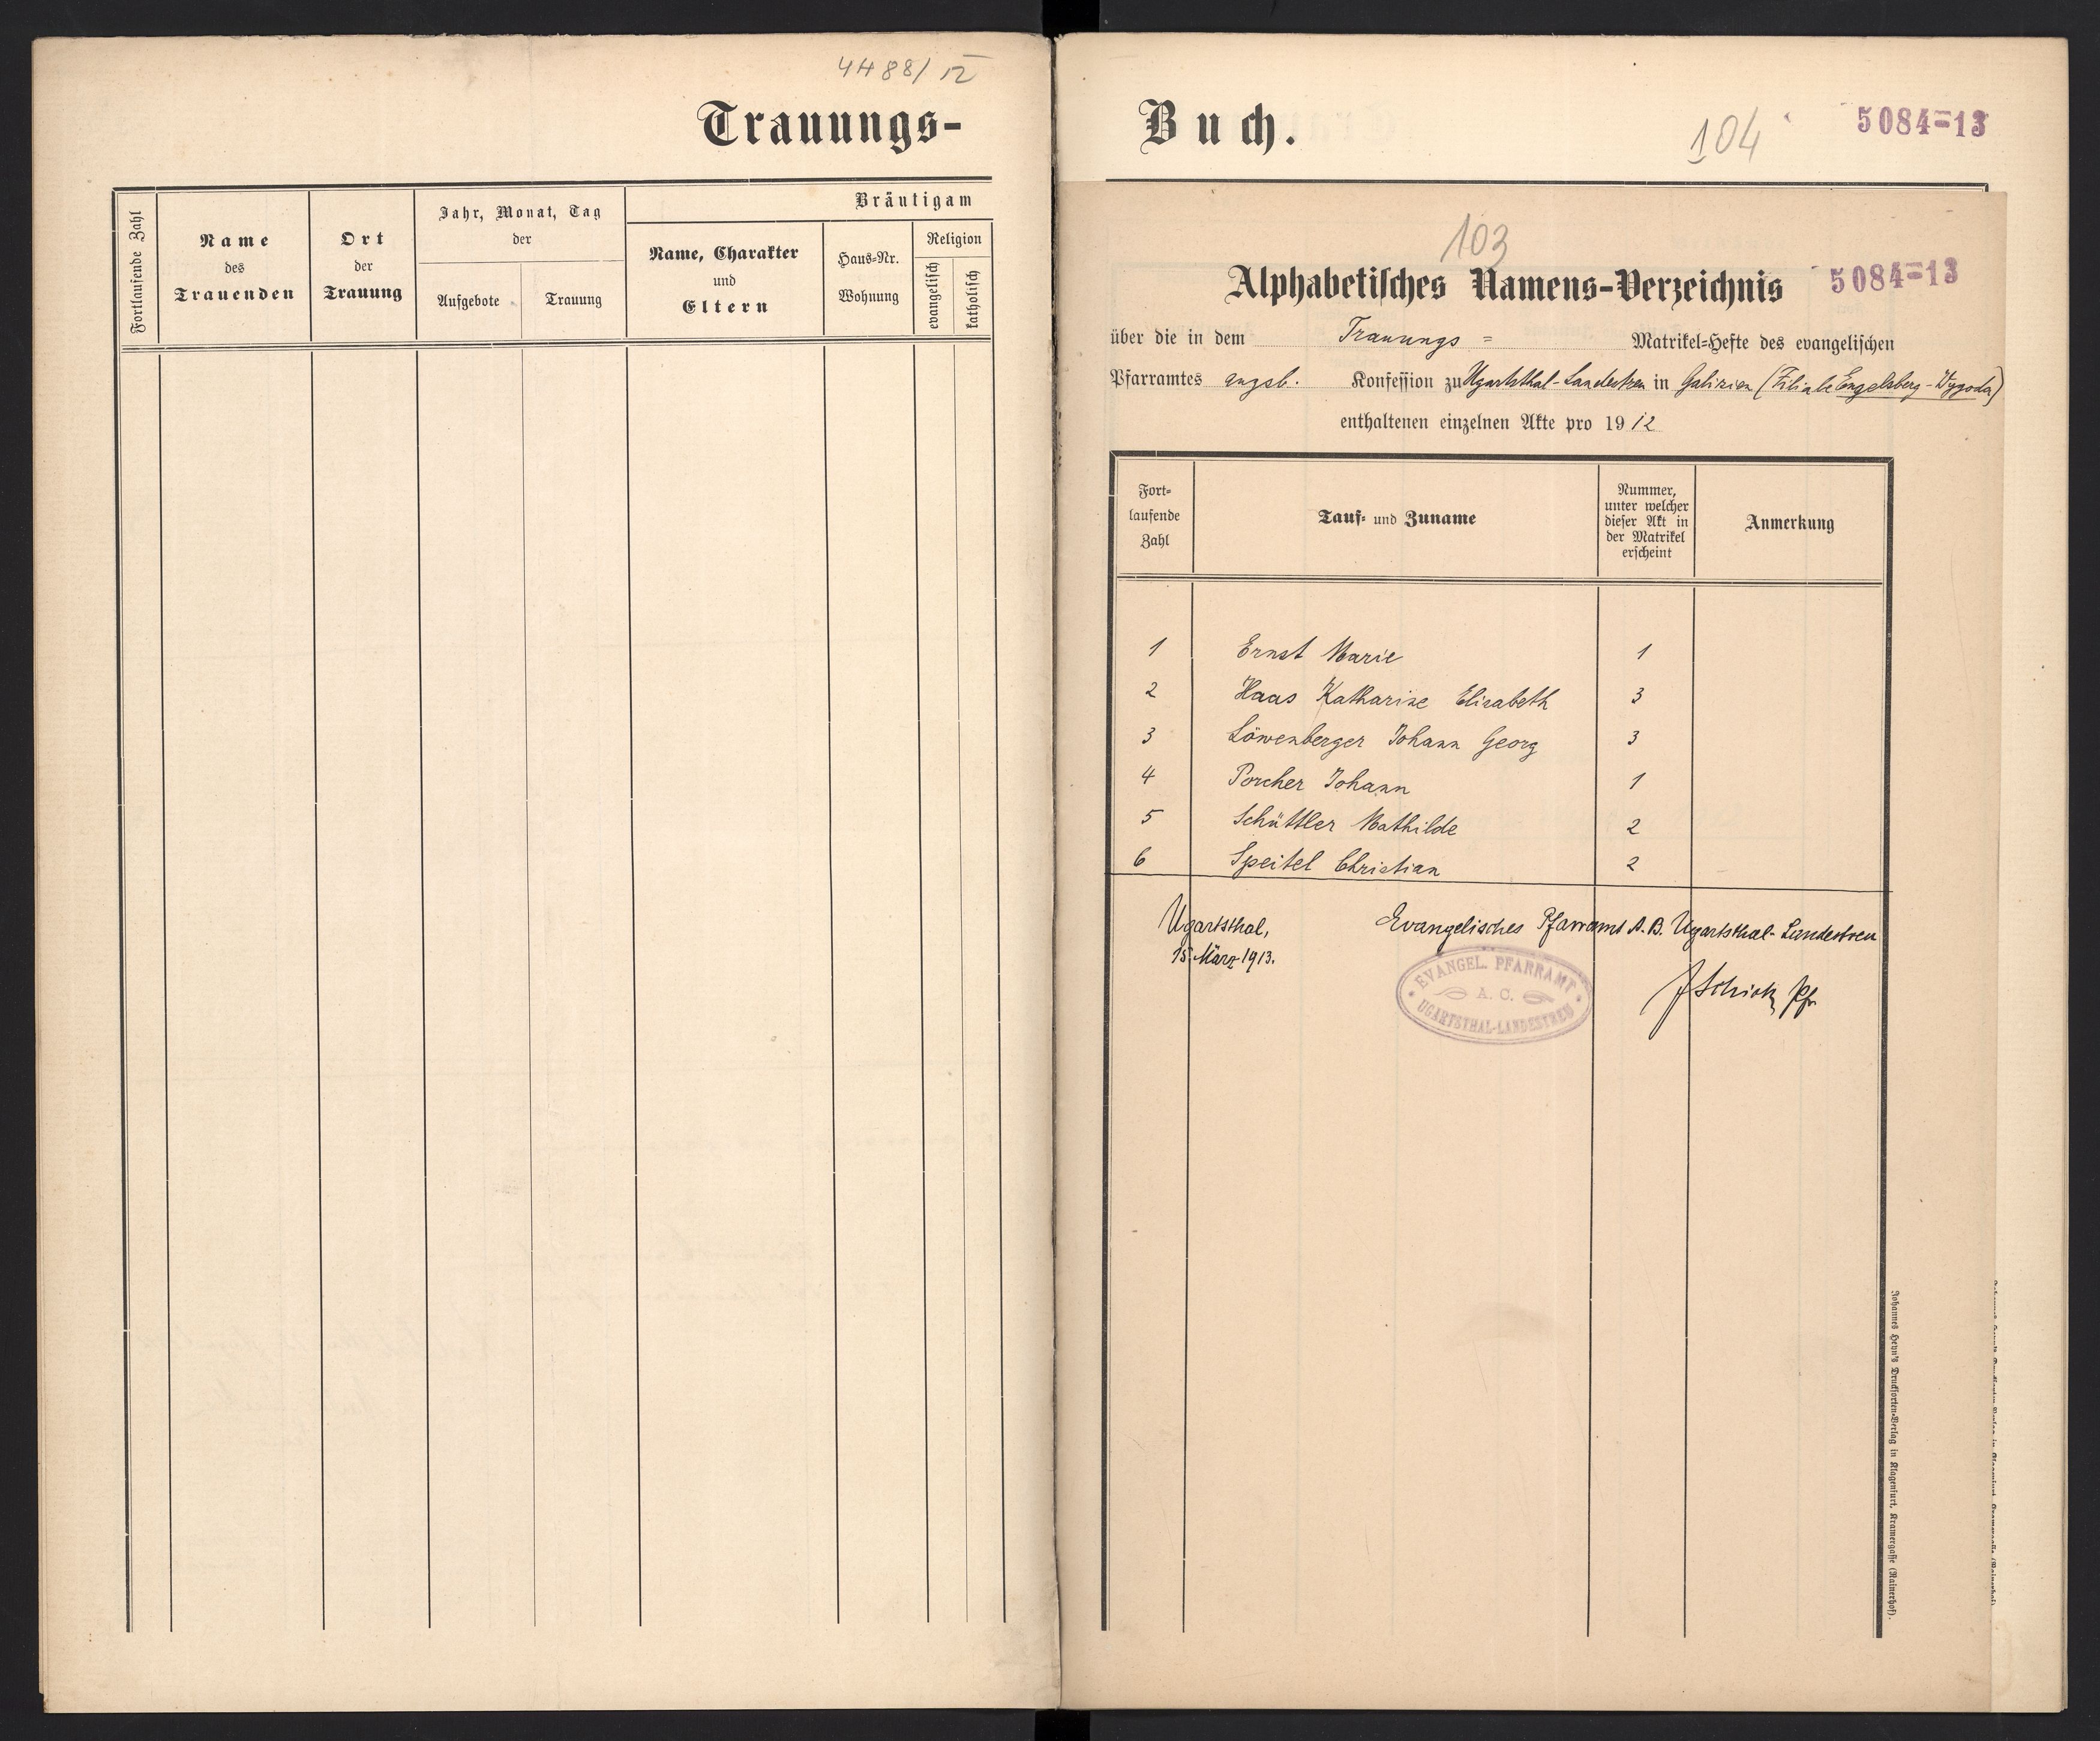 4488/12
Trauungs-
Fortlaufende Zahl
Name
des
Trauenden
Ort
der
Trauung
Jahr, Monat, Tag
der
Aufgebote
Trauung
Bräutigam
Name, Charakter
und
Eltern
Haus-Nr.
Wohnung
Religion
evangelisch
katholisch
Buch.
104
5084=13
103
Alphabetisches Namens-Verzeichnis 5084=13
über die in dem Trauungs = Matrikel-Hefte des evangelischen
Pfarramtes augsb. Konfession zu Ugartsthal-Landestreu in Galizien (Filiale Engelsberg-Wygoda)
enthaltenen einzelnen Akte pro 1912
Fort-
laufende
Zahl
Tauf- und Zuname
Nummer,
unter welcher
dieser Akt in
der Matrikel
erscheint
Anmerkung
1 Ernst Marie 1
2 Haas Katharine Elisabeth 3
3 Löwenberger Johann Georg 3
4 Porcher Johann 1
5 Schüttler Mathilde 2
6 Speitel Christian 2
Ugartsthal,
15. März 1913.
Evangelisches Pfarramt A. B. Ugartsthal-Landestreu
EVANGEL. PFARRAMT
A. C.
UGARTSTHAL-LANDESTREU
J Schick, Pfr
Johannes Heyn's Drucksorten-Verlag in Klagenfurt, Kramergasse (Rainerhof).